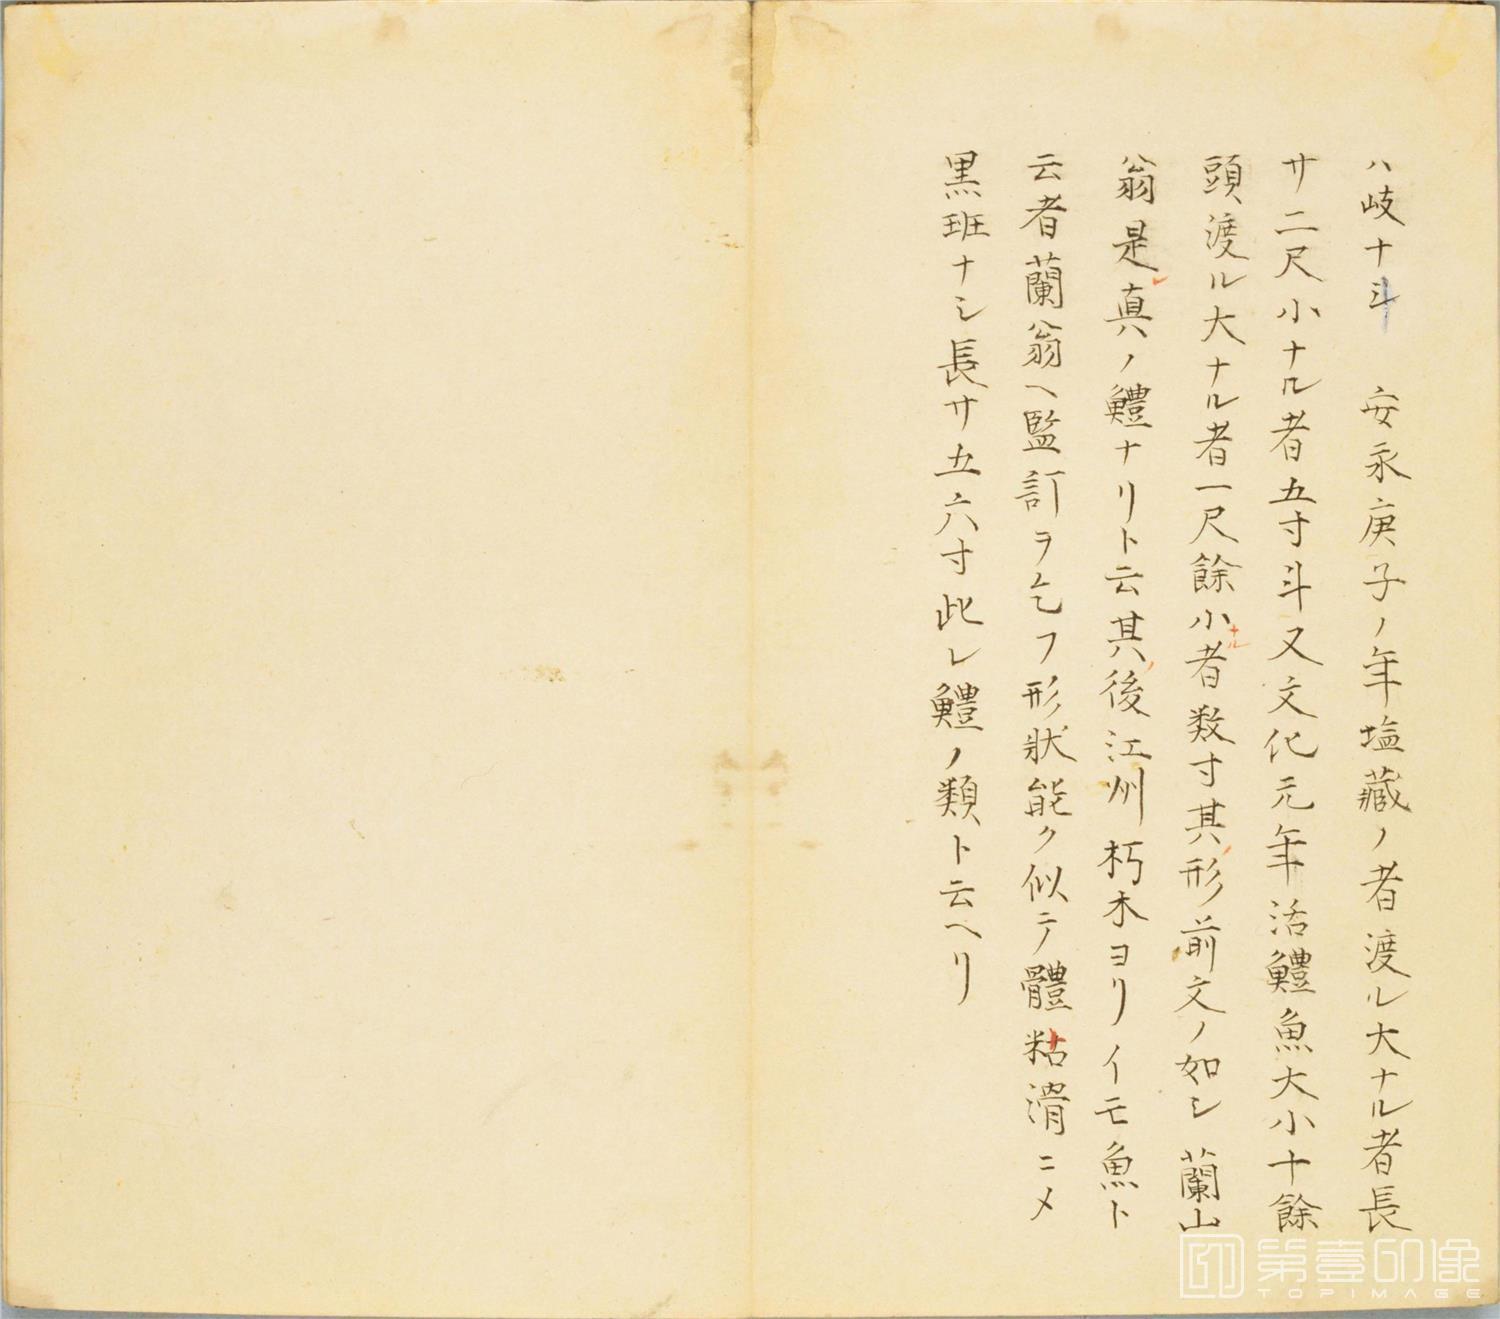 ハ岐ナシ　安永庚子ノ年塩藏ノ者渡ル大ナル者長
サ二尺小ナル者五寸斗又文化元年活鱧魚大小十餘
頭渡ル大ナル者一尺餘小ナル者数寸其形前文ノ如シ蘭山
翁是真ノ鱧ナリト云其後江州朽木ヨリイモ魚ト
云者蘭翁ヘ監訂ヲ乞フ形状能ク似テ體粘滑ニメ
黒班ナシ長サ五六寸此レ鱧ノ類ト云ヘリ
第壹印像
TOPIMAGE